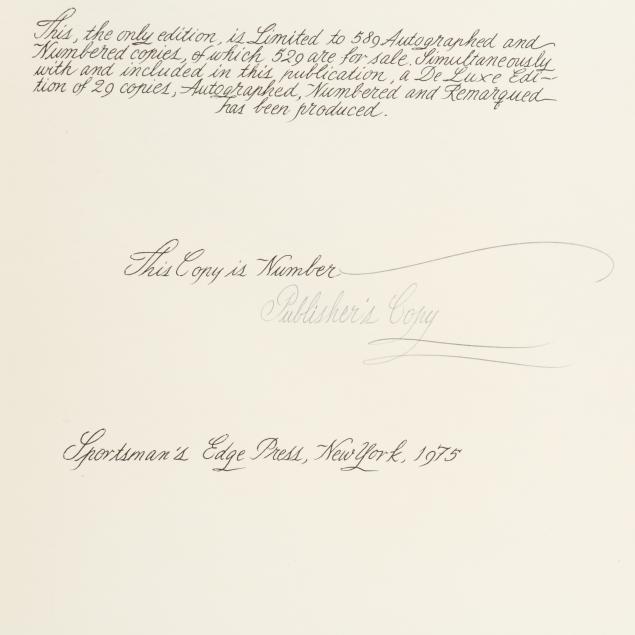 This, the only edition, is Limited to 589 Autographed and
Numbered copies, of which 529 are for sale. Simultaneously
with and included in this publication, a De Luxe Edi-
tion of 29 copies, Autographed, Numbered and Remarqued
has been produced.
This Copy is Number
Publisher's Copy
Sportsman's Edge Press, New York, 1975